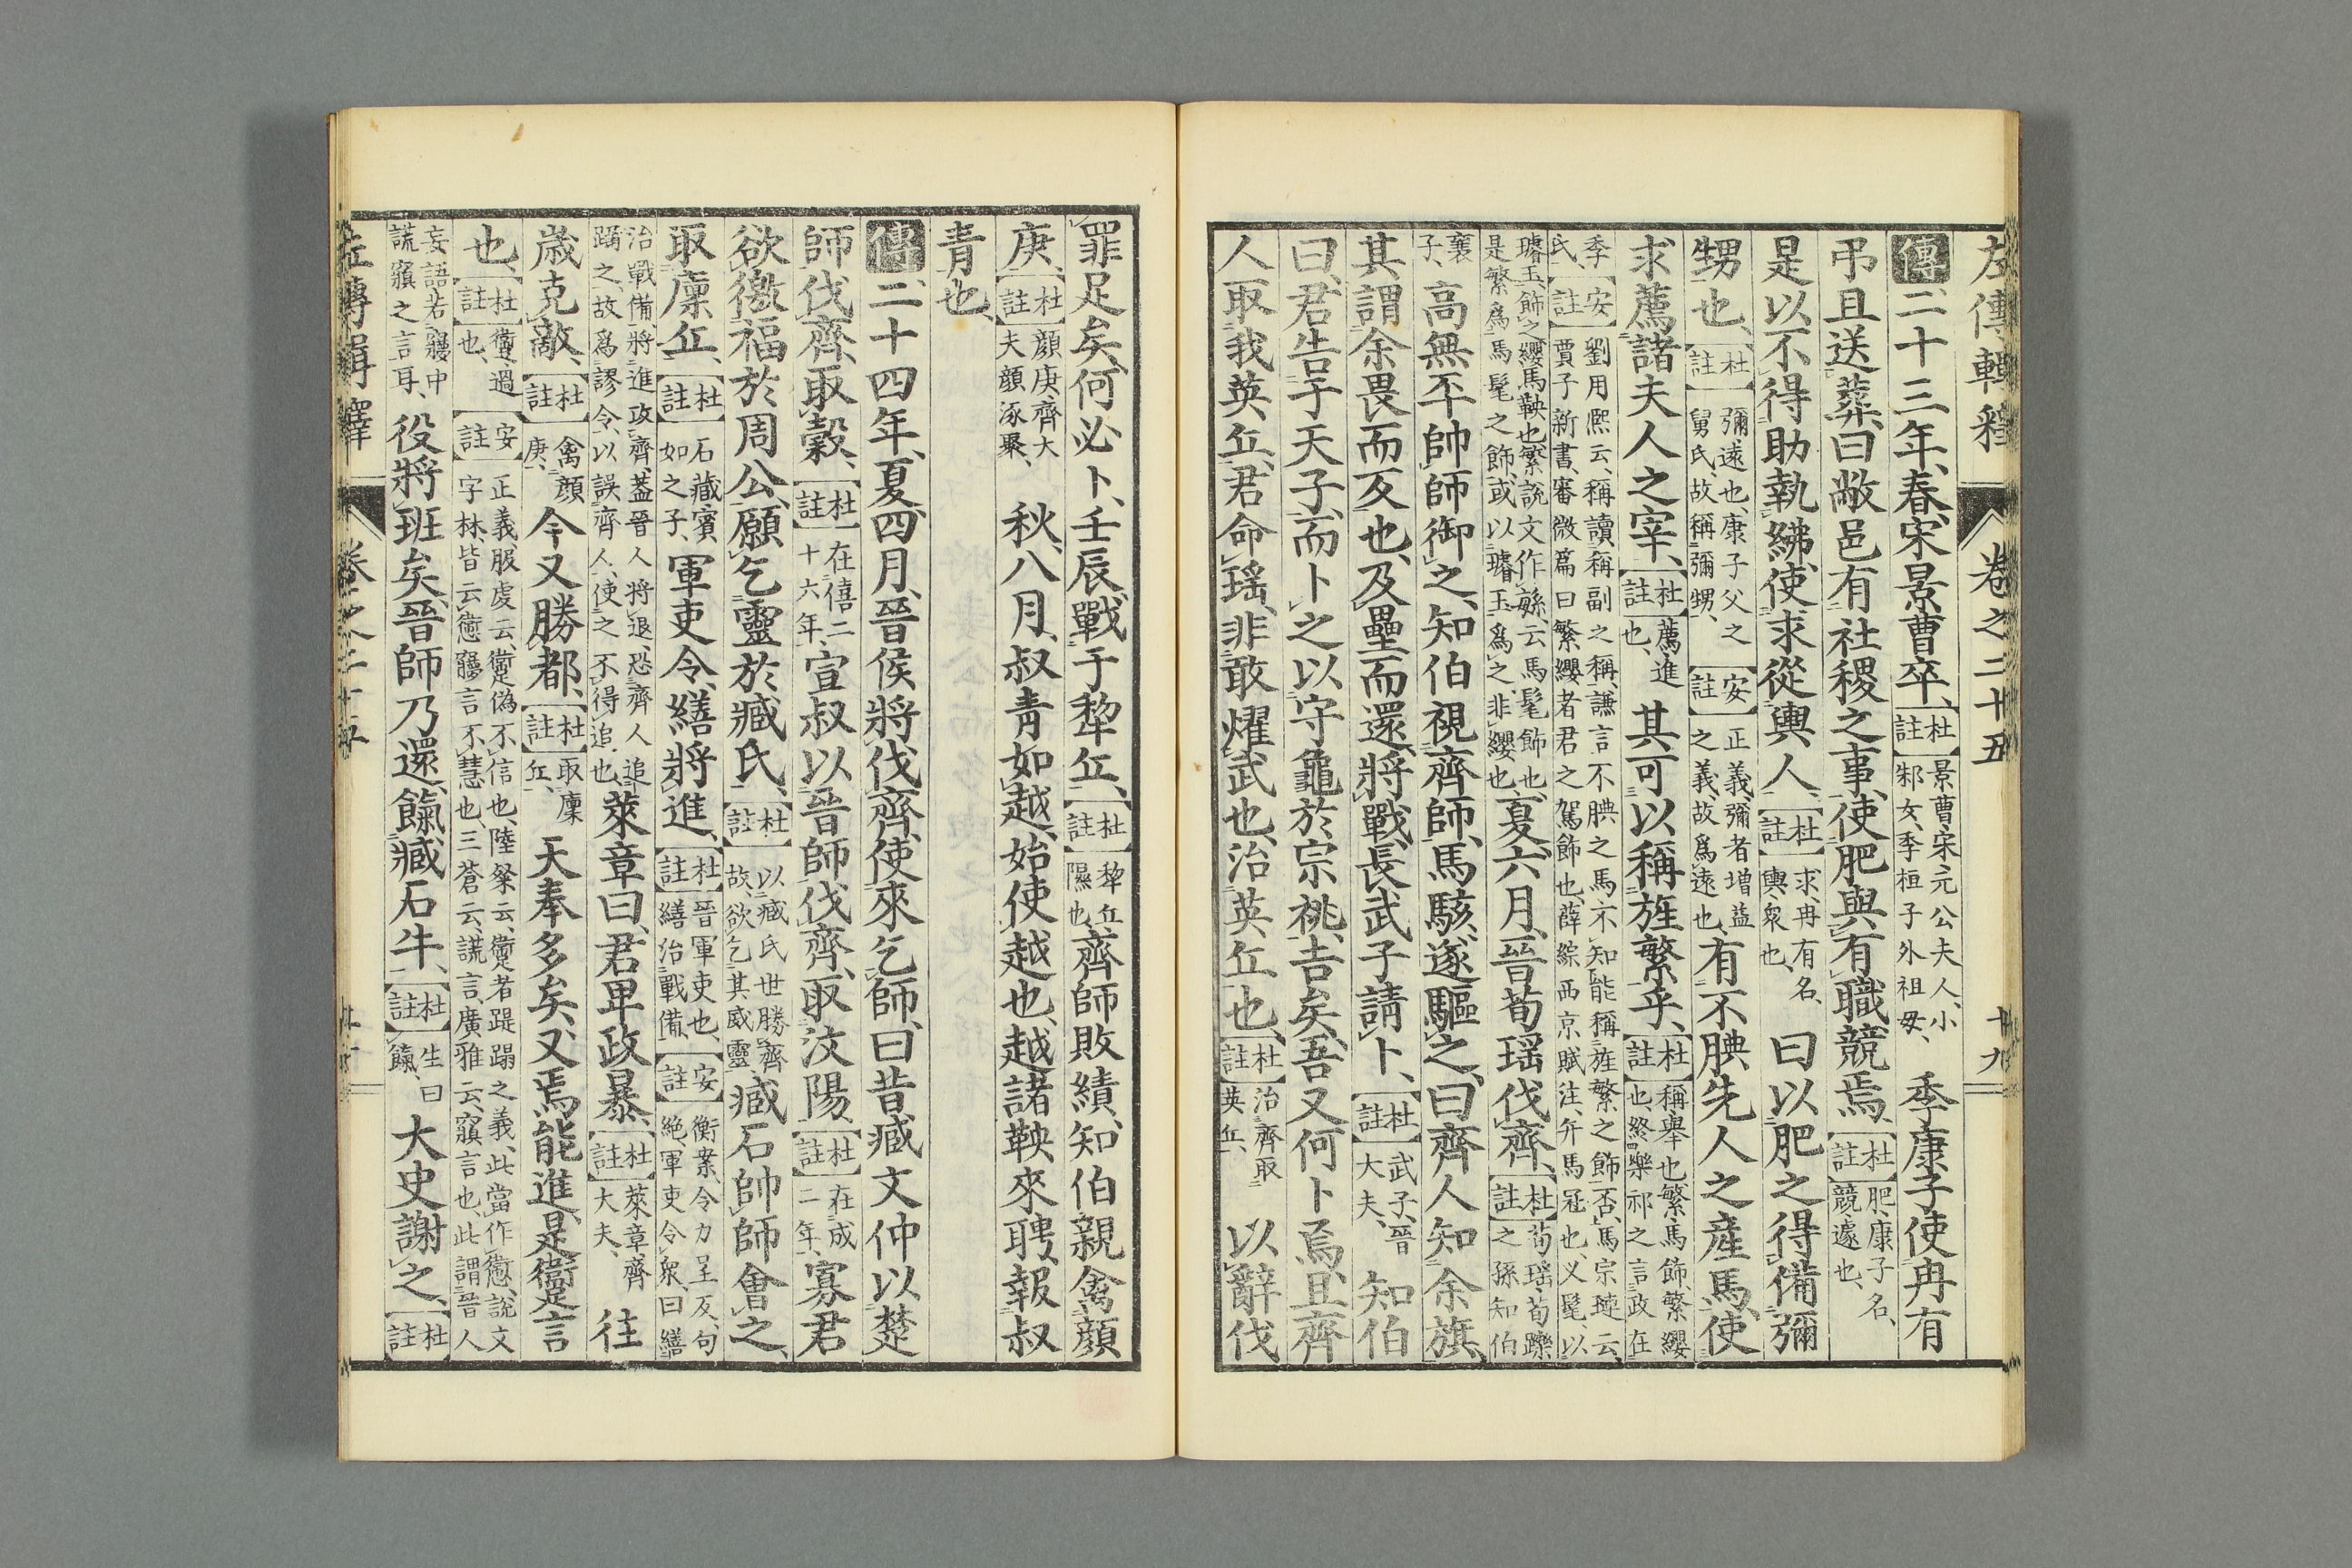 左傳輯釋 卷之二十五 十九
傳二十三年、春、宋景曹卒、【杜註】景曹、宋元公夫人、小邾女、季桓子外祖母、季康子使冉有
弔且送葬、曰敝邑有社稷之事、使肥與有職競焉、【杜註】肥、康子名、競、遽也、
是以不得助執紼、使求從輿人、【杜註】求、冉有名、輿、衆也、曰以肥之得備彌
甥也、【杜註】彌、遠也、康子父之舅氏、故稱彌甥、【安註】正義、彌者增益之義、故爲遠也、有不腆先人之產馬、使
求薦諸夫人之宰、【杜註】薦、進也、其可以稱旌繁乎、【杜註】稱、舉也、繁、馬飾、繁纓也、終樂祁之言、政在
季氏、【安註】劉用熙云、稱讀稱副之稱、謙言不腆之馬、不知能稱旌繁之飾否、馬宗璉云、賈子新書、審微篇曰繁纓者君之駕飾也、薛綜西京賦注、弁馬冠也、叉髦、以
璿玉、飾之、纓馬鞅也、繁說文作緐、云馬髦飾也、是繁爲馬髦之飾、或以璿玉爲之、非纓也、夏、六月、晉荀瑤伐齊、【杜註】荀瑤、荀躒之孫、知伯
襄子、高無㔻帥師御之、知伯視齊師、馬駭、遂驅之、曰齊人知余旗、
其謂余畏而反也、及壘而還、將戰、長武子請卜、【杜註】武子、晉大夫、知伯
曰、君告于天子、而卜之以守龜於宗祧、吉矣、吾又何卜焉、且齊
人取我英丘、君命瑤、非敢燿武也、治英丘也、【杜註】治齊取英丘、以辭伐
罪足矣、何必卜、壬辰、戰于犂丘、【杜註】犂丘、隰也、齊師敗績、知伯親禽顏
庚、【杜註】顏庚、齊大夫顏涿聚、秋、八月、叔青如越、始使越也、越諸鞅來聘、報叔
青也、
傳二十四年、夏、四月、晉侯將伐齊、使來乞師、曰昔臧文仲以楚
師伐齊、取穀、【杜註】在僖二十六年、宣叔以晉師伐齊、取汶陽、【杜註】在成二年、寡君
欲徼福於周公、願乞靈於臧氏、【杜註】以臧氏世勝齊、故欲乞其威靈、臧石帥師會之、
取廩丘、【杜註】石臧賓如之子、軍吏令繕、將進、【杜註】晉軍吏也、繕治戰備、【安註】衡案、令力呈反、句絕、軍吏令衆、曰繕
治戰備、將進攻齊、蓋晉人將退、恐齊人追躡之、故爲謬令、以誤齊人、使之不得追也、萊章曰、君卑政暴、【杜註】萊章齊大夫、往
歲克敵、【杜註】禽顏庚、今又勝都、【杜註】取廩丘、天奉多矣、又焉能進、是躗言
也、【杜註】躗、過也、【安註】正義、服虔云、躗偽不信也、陸粲云、躗者踶蹋之義、此當作𢣷、說文字林、皆云𢣷寱言不慧也、三蒼云、謊言、廣雅云、寱言也、此謂晉人
妄語、若寱中謊寱之言耳、役將班矣、晉師乃還、餼臧石牛、【杜註】生曰餼、大史謝之、【杜註】
左傳輯釋 卷之二十五